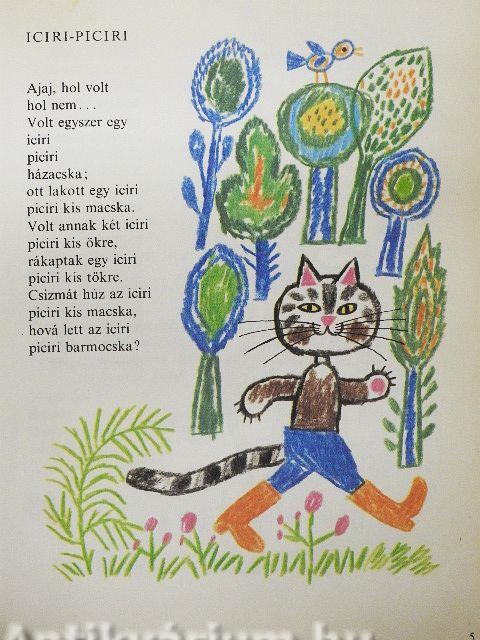 ICIRI-PICIRI
Ajaj, hol volt
hol nem...
Volt egyszer egy
iciri
piciri
házacska;
ott lakott egy iciri
piciri kis macska.
Volt annak két iciri
piciri kis ökre,
rákaptak egy iciri
piciri kis tökre.
Csizmát húz az iciri
piciri kis macska,
hová lett az iciri
piciri barmocska?
5
Antikvárium.hu